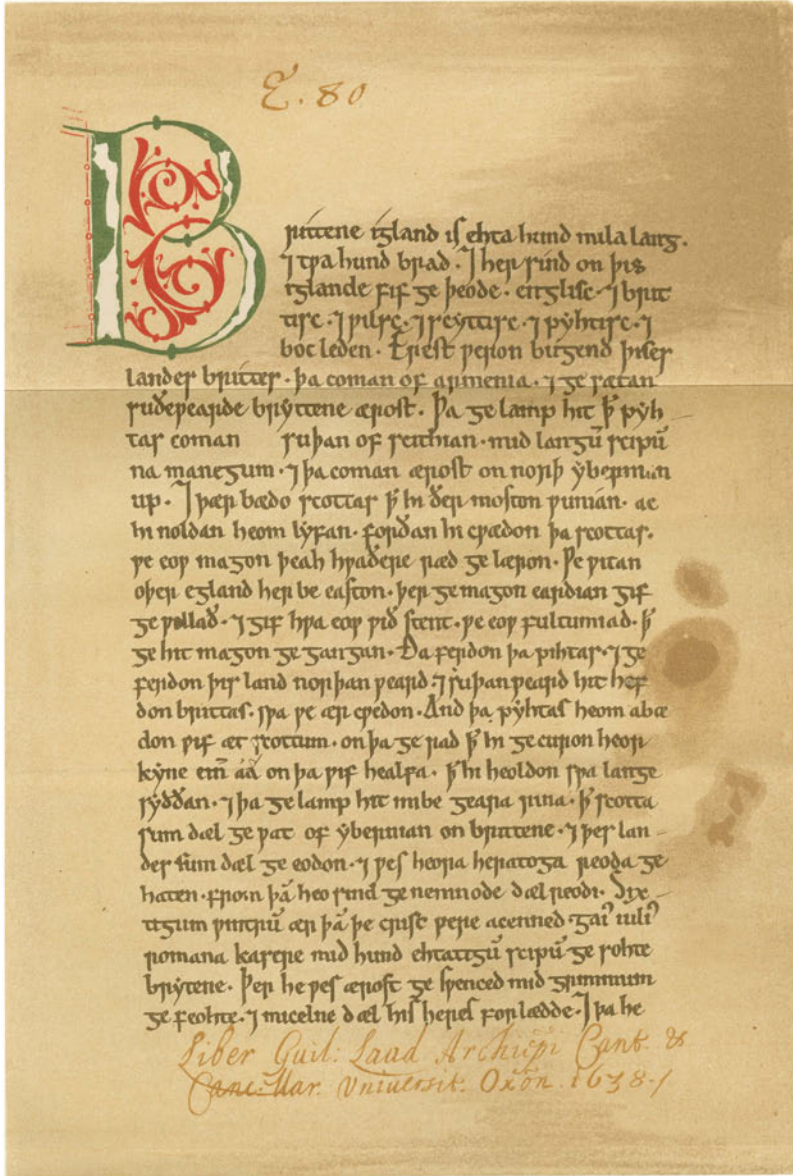 E. 80
Brittene igland is ehta hund mila lang.
⁊ tƿa hund brad. ⁊ her sind on þis
iglande fif ge þeode. englisc. ⁊ brit
tisc. ⁊ ƿilsc. ⁊ scyttisc. ⁊ pyhtisc. ⁊
boc leden. Erest ƿeron bugend þises
landes brittes. þa coman of armenia. ⁊ ge sætan
suðeƿearde bryttene ærost. Þa ge lamp hit ꝥ pyh
tas coman suþan of scithian. mid langū scipū
na manegum. ⁊ þa coman ærost on norþ ybernian
up. ⁊ þær bædo scottas ꝥ hi ðer moston ƿunian. ac
hi noldan heom lyfan. forðan hi cƿædon þa scottas.
ƿe eoƿ magon þeah hƿaðere ræd ge læron. Ƿe ƿitan
oþer egland her be easton. þer ge magon eardian gif
ge ƿillað. ⁊ gif hƿa eoƿ ƿið stent. ƿe eoƿ fultumiad. ꝥ
ge hit magon ge gangan. Ða ferdon þa pihtas. ⁊ ge
ferdon þis land norþan ƿeard. ⁊ suþan ƿeard hit hef
don brittas. sƿa ƿe ær cƿedon. And þa pyhtas heom abæ
don ƿif æt scottum. on þa ge rad ꝥ hi gecuron heor
kyne cīn aá on þa ƿif healfa. ꝥ hi heoldon sƿa lange
syððan. ⁊ þa ge lamp hit imbe geara rina. ꝥ scotta
sum dæl ge ƿat of ybernian on brittene. ⁊ þes lan
des sum dæl ge eodon. ⁊ ƿes heora heratoga reoda ge
haten. from þā heo sind ge nemnode dæl reodi. Six
tigum ƿintrū ær þā þe crist ƿere acenned. gaiꝰ iuliꝰ
romana kasere mid hund ehtatigū scipū ge sohte
brytene. Þer he ƿes ærost ge sƿenced mid grimmum
ge feohte. ⁊ micelne dæl his heres forlædde. ⁊ þa he
Liber Guil: Laud Archiepi Cant. &
Canc: Uar. Vniuersit. Oxōn. 1638.